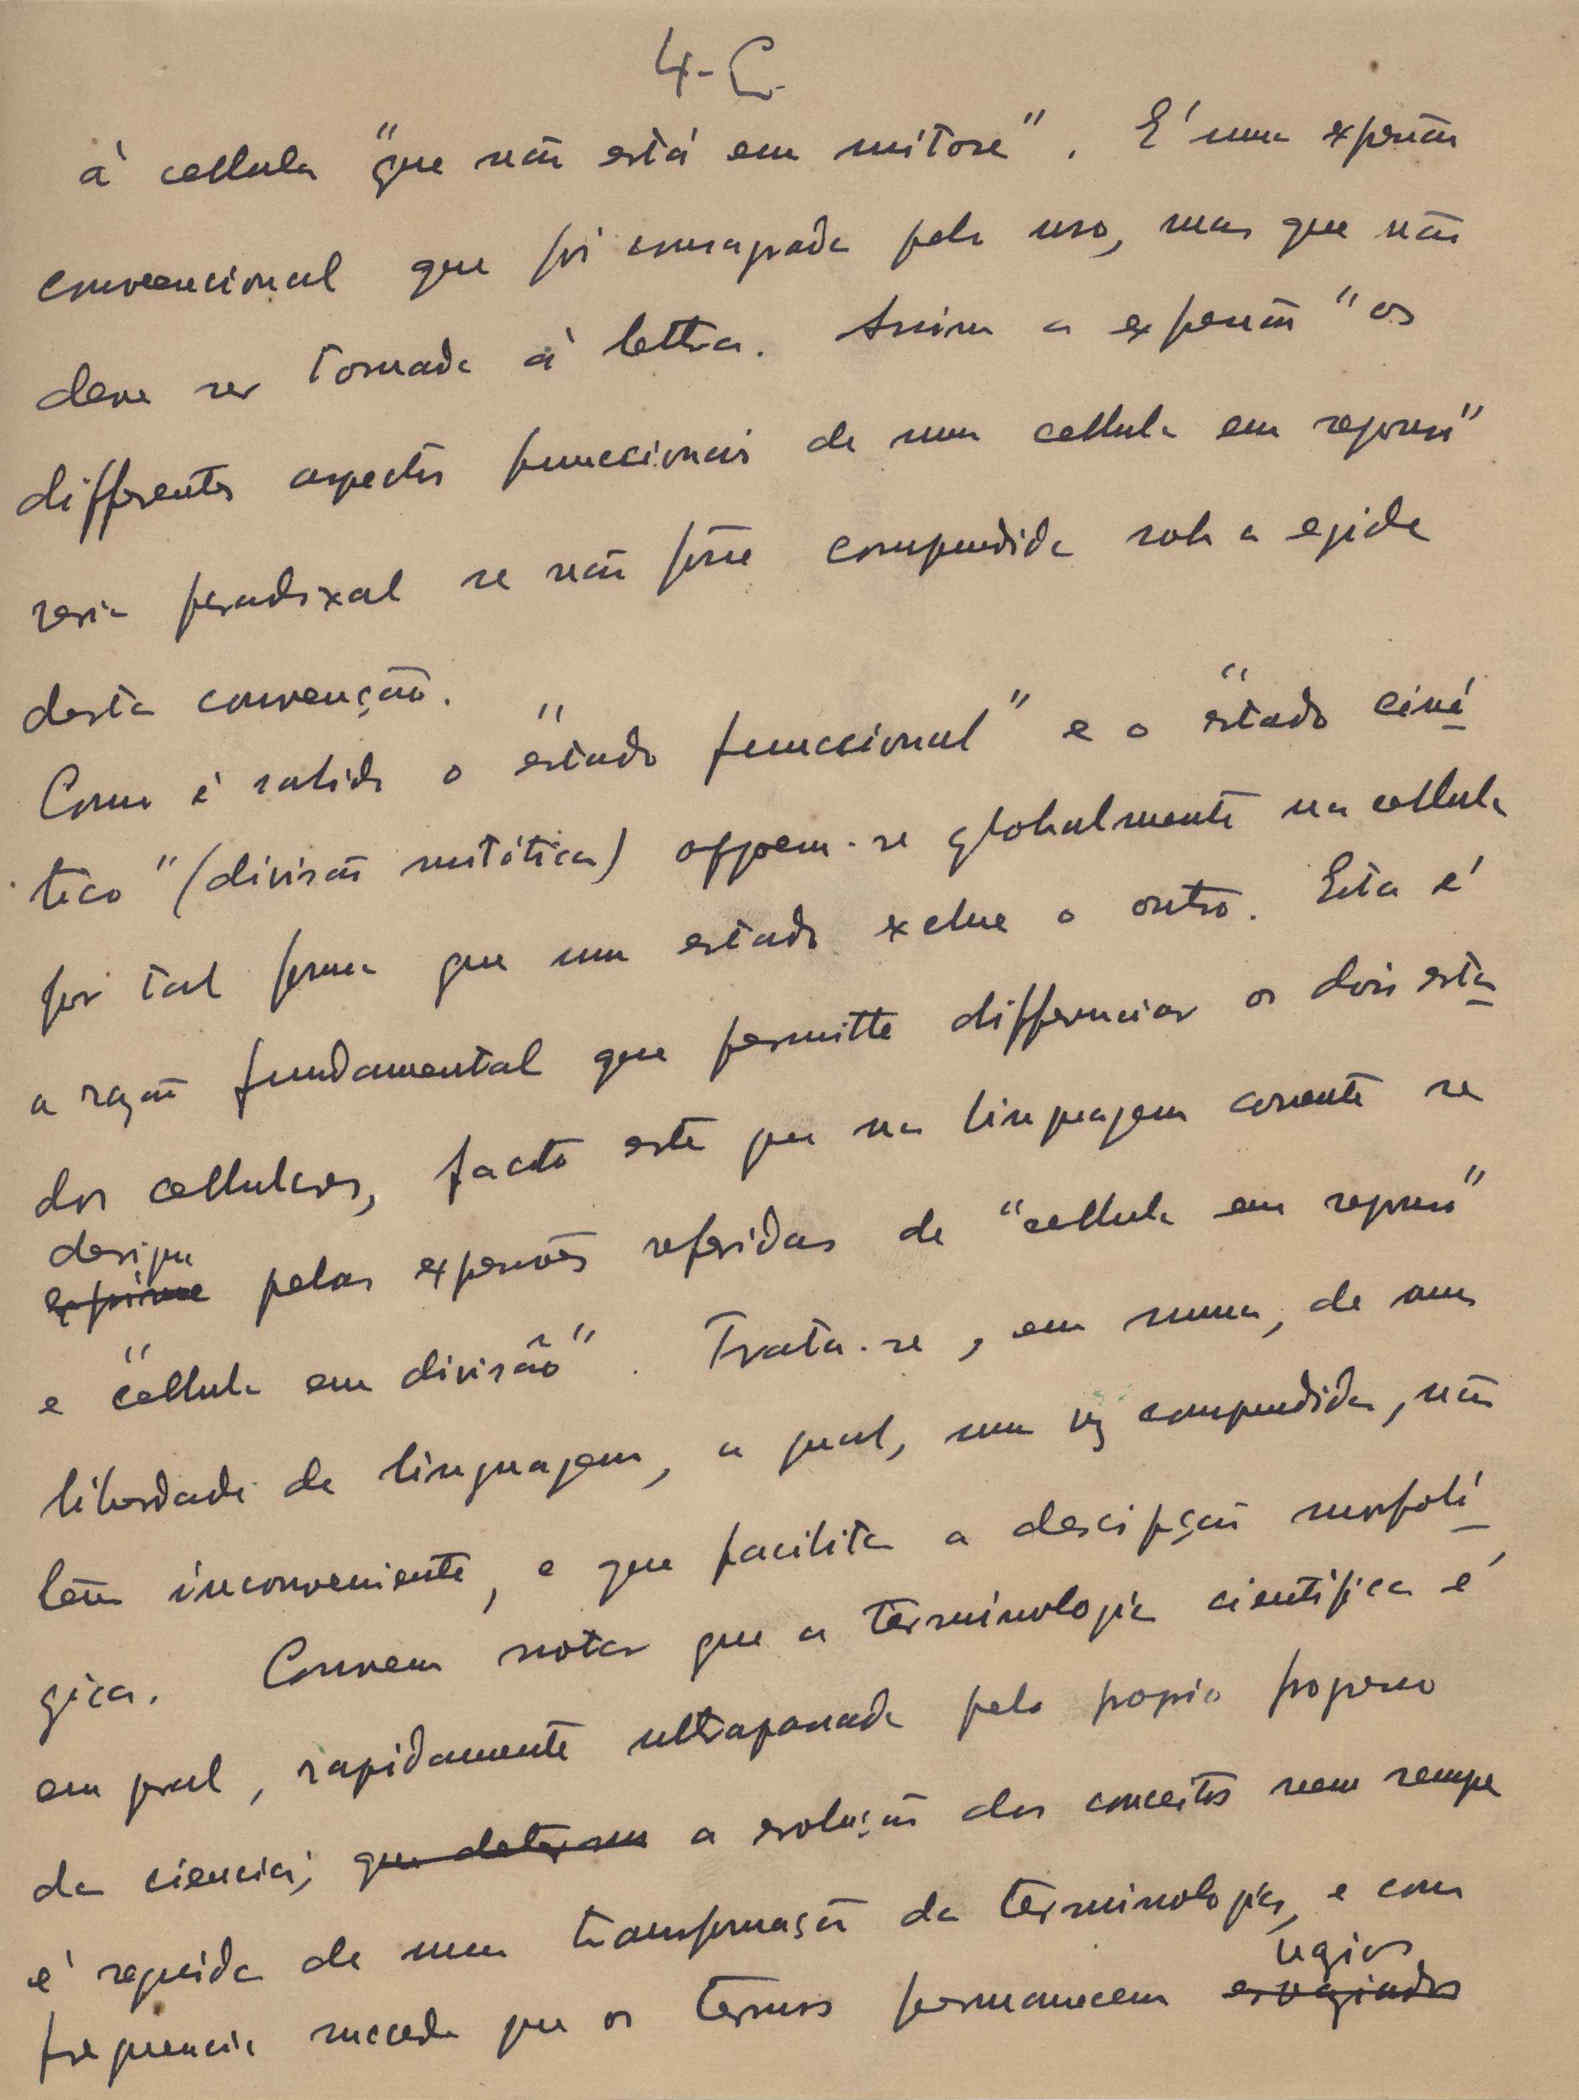 4-C.
á cellula "que não está em mitose". É uma expressão
convencional que foi consagrada pelo uso, mas que não
deve ser tomada á lettra. Assim a expressão "os
differentes aspectos funccionais de uma cellula em repouso"
seria paradoxal se não fôsse comprendida sob a egide
desta convenção.
Como é sabido o "estado funccional" e o "estado ciné
tico" (divisão mitótica) oppoem-se globalmente na cellula
por tal forma que um estado exclue o outro. Esta é
a razão fundamental que permitte differenciar os dois esta
dos cellulares, facto este que na linguagem corrente se
designa
exprime pelas expressões referidas de "cellula em repouso"
e "cellula em divisão". Trata-se, em suma, de uma
liberdade de linguagem, a qual, uma vez comprendida, não
tem inconveniente, e que facilita a descripção morfoló
gica. Convem notar que a terminologia cientifica é
em geral, rapidamente ultrapassada pelo proprio progresso
da ciencia; que determina a evolução dos conceitos nem sempre
é seguida de uma transformação da terminologia, e com
frequencia succede que os termos permanecem